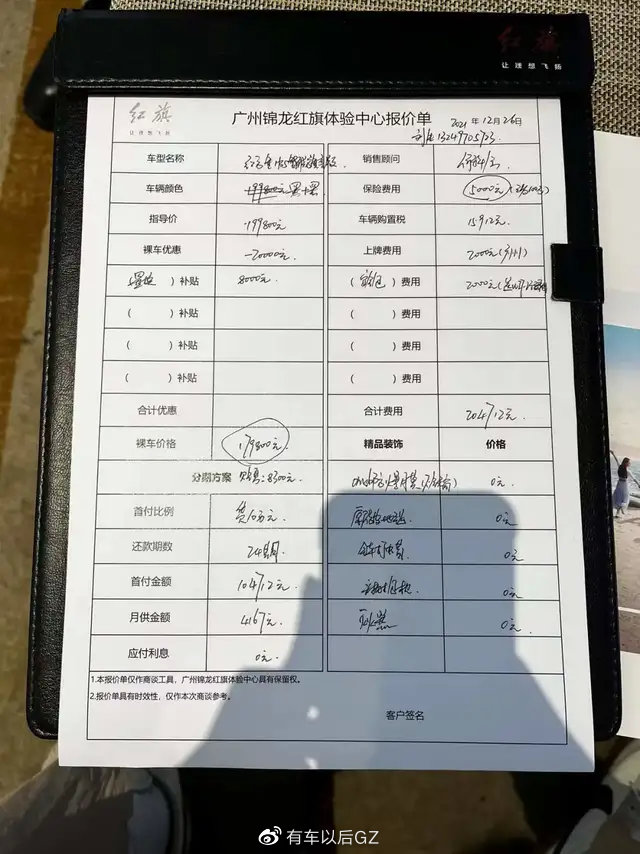 红旗
让理想飞扬
红旗
让理想飞扬
广州锦龙红旗体验中心报价单
2021年12月26日
13249705723
车型名称
销售顾问
车辆颜色 黑+黑
保险费用 5000元
指导价 199800元
车辆购置税 15912元
裸车优惠 -20000元
上牌费用 2000元
置换 )补贴 8000元
( )费用 2000元
( )补贴
( )费用
( )补贴
( )费用
( )补贴
( )费用
合计优惠
合计费用 204712元
裸车价格 179800元
精品装饰 价格
分期方案 8300元
0元
首付比例 贷10万元
0元
还款期数 24期
全车打蜡 0元
首付金额 104712元
0元
月供金额 4167元
0元
应付利息 0元
1.本报价单仅作商谈工具，广州锦龙红旗体验中心具有保留权。
2.报价单具有时效性，仅作本次商谈参考。
客户签名
有车以后GZ